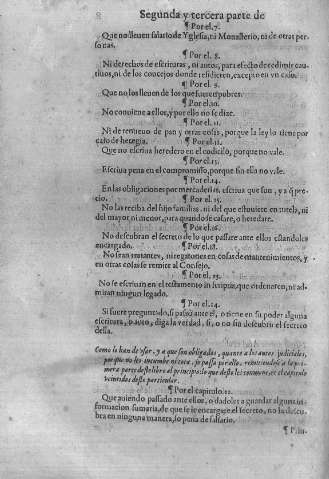 8 Segunda y tercera parte de
¶ Por el.7.
Que no lleuen salario de Yglesia, ni Monasterio, ni de otras per
sonas.
¶ Por el. 8.
Ni derechos de escrituras, ni autos, para efecto de redimir cau
tiuos, ni de los concejos donde residieren, excepto en vn caso.
¶ Por el. 9.
Que no los lleuen de los que fueren pobres.
¶ Por el.10.
No conuiene a ellos, y por ello no se dize.
¶ Por el. 11.
Ni de renueuo de pan y otras cosas, porque la ley lo tiene por
caso de heregia. ¶ Por el.12.
Que no escriua heredero en el codicilo, porque no vale.
¶ Por el.13.
Escriua pena en el compromisso, porque sin ella no vale.
¶ Por el.14.
En las obligaciones por mercaderias, escriua que son, y a q̃ pre
cio. ¶ Por el. 15.
No las reciba del hijo familias, ni del que estuuiere en tutela, ni
del mayor, ni menor, para quando se casare, o heredare.
¶ Por el.16.
No descubran el secreto de lo que passare ante ellos estandoles
encargado. ¶ Por el.18.
No sean tratantes, ni regatones en cosas de mantenimientos, y
en otras cosas se remite al Consejo.
¶ Por el. 23.
No se escriuan en el testamento in scriptis, que ordenaren, ni ad
mitan ningun legado.
¶ Por el.24.
Si fuere preguntado, si passò ante el, o tiene en su poder alguna
escritura, o auto, diga la verdad, si, o no sin descubrir el secreto
della.
Como lo han de vsar, y a que son obligados, quanto a los autos judiciales,
por que no les incumbe
mera parte deste libro al principio, lo que deste les conuiene, es el capitulo
veintidos deste particular.
¶ Por el capitulo.22.
Que auiendo passado ante ellos, o dadoles a guardar alguna in
formacion sumaria, de que se le encargue el secreto, no la descu
bra en ninguna manera, so pena de falsario.